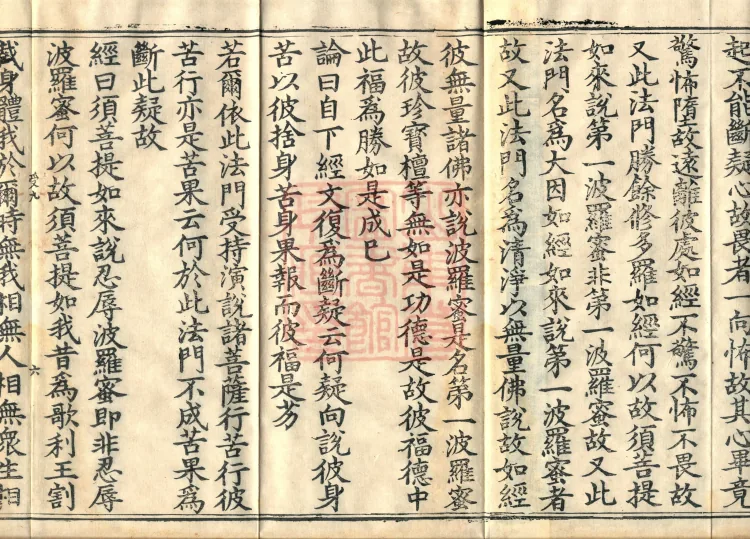 起不能斷疑心故畏者一向怖故其心畢竟
驚怖墮故遠離彼處如經不驚不怖不畏故
又此法門勝餘修多羅如經何以故須菩提
如來說第一波羅蜜非第一波羅蜜故又此
法門名為大因如經如來說第一波羅蜜者
故又此法門名為清淨以無量佛說故如經
彼無量諸佛亦說波羅蜜是名第一波羅蜜
故彼珍寶檀等無如是功德是故彼福德中
此福為勝如是成巳
論曰自下經文復為斷疑云何疑向說彼身
苦以彼捨身苦身果報而彼福是劣
若爾依此法門受持演說諸菩薩行苦行彼
苦行亦是苦果云何於此法門不成苦果為
斷此疑故
經曰須菩提如來說忍辱波羅蜜即非忍辱
波羅蜜何以故須菩提如我昔為歌利王割
截身體我於爾時無我相無人相無眾生相
六